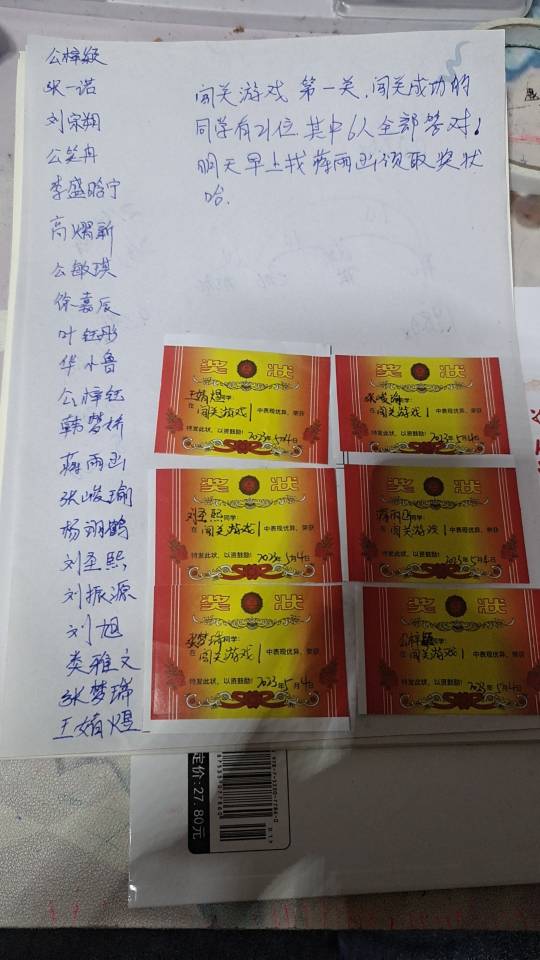 公梓颖
张一诺
刘宗翔
公笑冉
李盛晗宁
高熠新
公敏琪
徐嘉辰
叶钰彤
华小鲁
公梓钰
韩梦桥
蒋雨函
张峻瑜
杨翊鹤
刘圣熙
刘振源
刘旭
类雅文
张梦瑞
王婧煜
闯关游戏 第一关,闯关成功的
同学有21位 其中6人全部答对!
明天早上找蒋雨函领取奖状
哈.
奖 状
王婧煜同学:
在 闯关游戏1 中表现优异,荣获
特发此状,以资鼓励!
2023年5月4日
奖 状
张峻瑜同学:
在 闯关游戏1 中表现优异,荣获
特发此状,以资鼓励!
2023年5月4日
奖 状
刘圣熙同学:
在 闯关游戏1 中表现优异,荣获
特发此状,以资鼓励!
2023年5月4日
奖 状
蒋雨函同学:
在 闯关游戏1 中表现优异,荣获
特发此状,以资鼓励!
2023年5月4日
奖 状
张梦瑞同学:
在 闯关游戏1 中表现优异,荣获
特发此状,以资鼓励!
2023年5月4日
奖 状
公梓颖同学:
在 闯关游戏1 中表现优异,荣获
特发此状,以资鼓励!
2023年5月4日
定价:27.80元